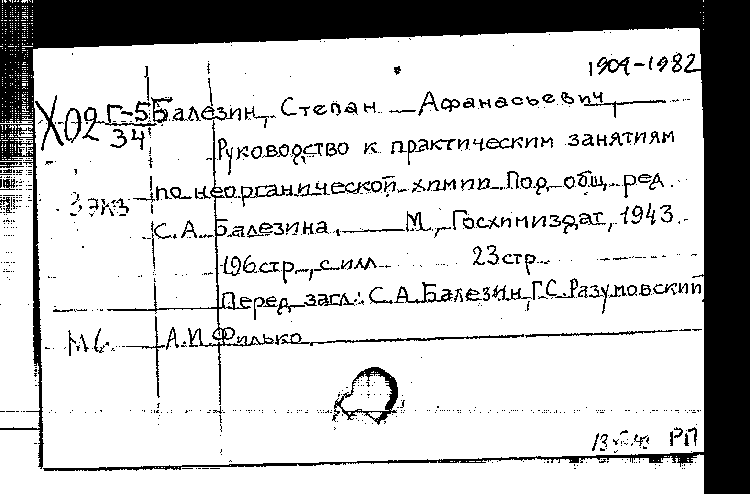 1904-1982
Х02 Г-5 Балезин, Степан Афанасьевич
34
Руководство к практическим занятиям
3 экз по неорганической химии Под общ. ред.
С.А. Балезина. М, Госхимиздат, 1943.
196стр., с илл 23стр
Перед загл.: С.А.Балезин, Г.С.Разумовский
А.И Филько.
РП